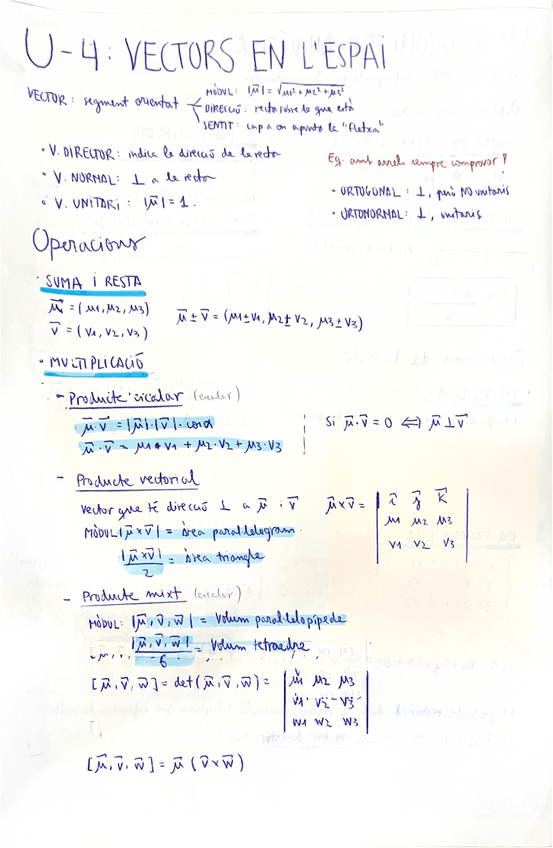 U-4: VECTORS EN L'ESPAI
VECTOR: segment orientat
MÒDUL: |u⃗| = √u1² + u2² + u3²
DIRECCIÓ: recta sobre la que està
SENTIT: cap a on apunta la "fletxa"
• V. DIRECTOR: indica la direcció de la recta
• V. NORMAL: ⊥ a la recta
• V. UNITARI: |u⃗| = 1.
Eq. amb arrels sempre comprovar!
- ORTOGONAL: ⊥, però NO unitaris
- ORTONORMAL: ⊥, unitaris
Operacions
• SUMA I RESTA
u⃗ = (u1, u2, u3)
v⃗ = (v1, v2, v3)
u⃗ ± v⃗ = (u1 ± v1, u2 ± v2, u3 ± v3)
• MULTIPLICACIÓ
- Producte escalar (escalar)
u⃗·v⃗ = |u⃗|·|v⃗|·cosα
u⃗·v⃗ = u1·v1 + u2·v2 + u3·v3
Si u⃗·v⃗ = 0 ⟺ u⃗ ⊥ v⃗
- Producte vectorial
Vector que té direcció ⊥ a u⃗ i v⃗
MÒDUL |u⃗ x v⃗| = àrea paral·lelogram
|u⃗ x v⃗| / 2 = àrea triangle
u⃗ x v⃗ =
i⃗ j⃗ k⃗
u1 u2 u3
v1 v2 v3
- Producte mixt (escalar)
MÒDUL: |u⃗, v⃗, w⃗| = Volum paral·lelopípede
|u⃗, v⃗, w⃗| / 6 = Volum tetraedre
[u⃗, v⃗, w⃗] = det(u⃗, v⃗, w⃗) =
u1 u2 u3
v1 v2 v3
w1 w2 w3
[u⃗, v⃗, w⃗] = u⃗ (v⃗ x w⃗)